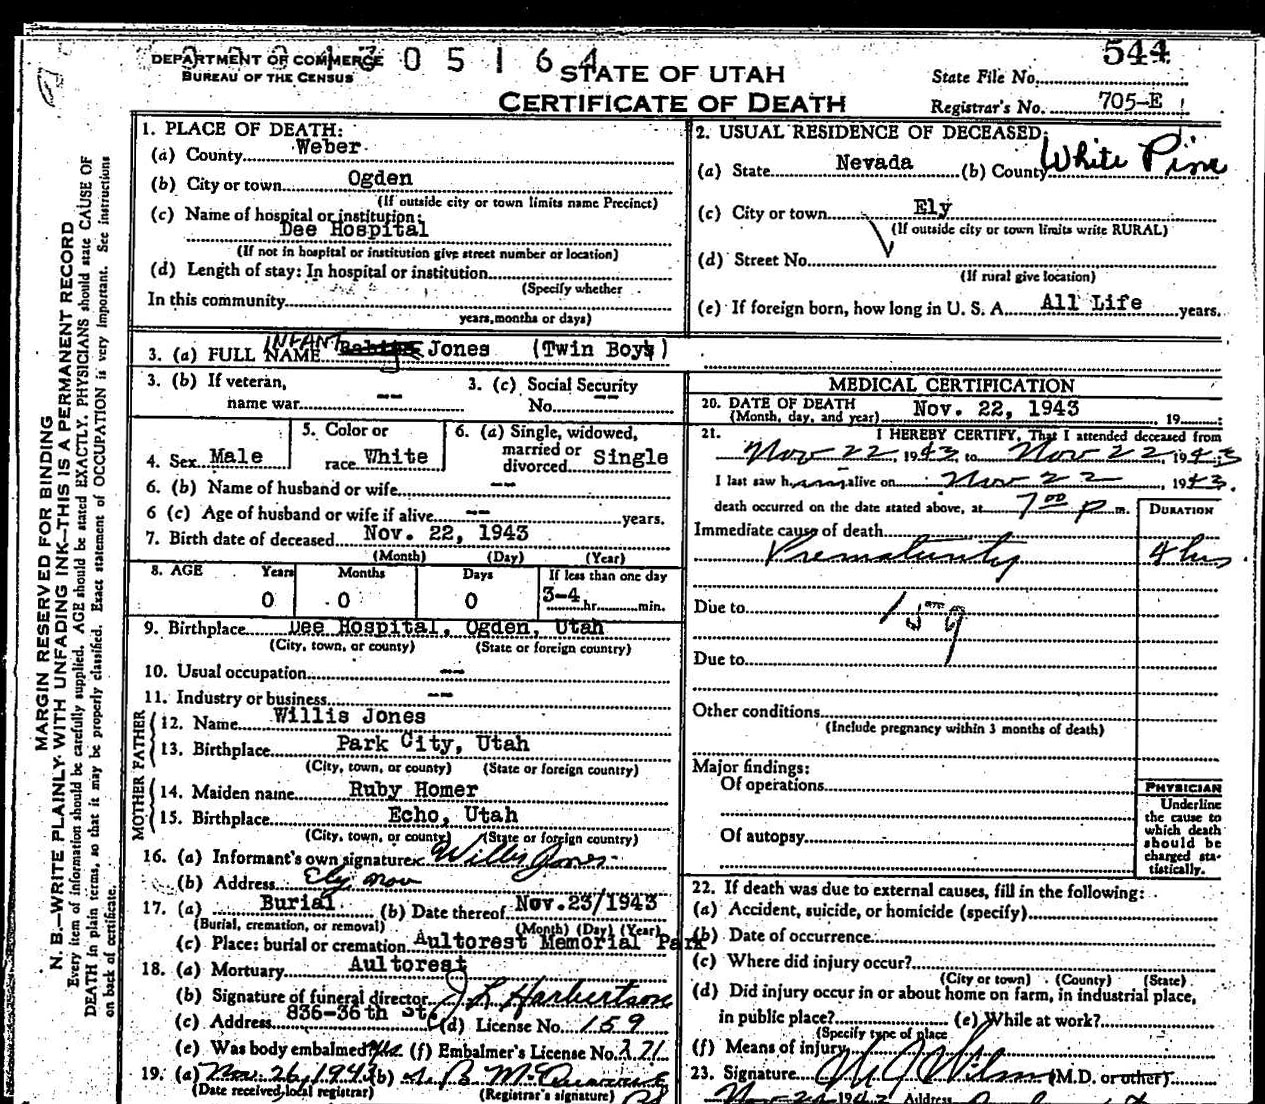 DEPARTMENT OF COMMERCE
BUREAU OF THE CENSUS
305164
STATE OF UTAH
CERTIFICATE OF DEATH
State File No. 544
Registrar's No. 705-E
MARGIN RESERVED FOR BINDING
N. B.—WRITE PLAINLY WITH UNFADING INK—THIS IS A PERMANENT RECORD
Every item of information should be carefully supplied. AGE should be stated EXACTLY. PHYSICIANS should state CAUSE OF
DEATH in plain terms, so that it may be properly classified. Exact statement of OCCUPATION is very important. See instructions
on back of certificate.
1. PLACE OF DEATH:
(a) County Weber
(b) City or town Ogden
(If outside city or town limits name Precinct)
(c) Name of hospital or institution:
Dee Hospital
(If not in hospital or institution give street number or location)
(d) Length of stay: In hospital or institution
(Specify whether
In this community
years, months or days)
2. USUAL RESIDENCE OF DECEASED:
(a) State Nevada (b) County White Pine
(c) City or town Ely
(If outside city or town limits write RURAL)
(d) Street No.
(If rural give location)
(e) If foreign born, how long in U. S. A. All Life years.
3. (a) FULL NAME INFANT Jones (Twin Boy )
3. (b) If veteran, name war --
3. (c) Social Security No. --
4. Sex Male
5. Color or race White
6. (a) Single, widowed, married or divorced Single
6. (b) Name of husband or wife --
6 (c) Age of husband or wife if alive -- years.
7. Birth date of deceased Nov. 22, 1943
(Month) (Day) (Year)
8. AGE Years Months Days If less than one day
0 0 0 3-4 hr. min.
9. Birthplace Dee Hospital, Ogden, Utah
(City, town, or county) (State or foreign country)
10. Usual occupation --
11. Industry or business --
FATHER
12. Name Willis Jones
13. Birthplace Park City, Utah
(City, town, or county) (State or foreign country)
MOTHER
14. Maiden name Ruby Homer
15. Birthplace Echo, Utah
(City, town, or county) (State or foreign country)
16. (a) Informant's own signature x Willis Jones
(b) Address Ely Nev
17. (a) Burial (b) Date thereof Nov.23/1943
(Burial, cremation, or removal) (Month) (Day) (Year)
(c) Place: burial or cremation Aultorest Memorial Park
18. (a) Mortuary Aultorest
(b) Signature of funeral director J L Harbertson
(c) Address 836-36th St. (d) License No. 159
(e) Was body embalmed? (f) Embalmer's License No. 271
19. (a) Nov. 26, 1943 (b)
(Date received local registrar) (Registrar's signature)
MEDICAL CERTIFICATION
20. DATE OF DEATH Nov. 22, 1943
(Month, day, and year) 19
21. I HEREBY CERTIFY, That I attended deceased from
Nov 22, 1943, to Nov 22, 1943
I last saw h im alive on Nov 22, 1943.
death occurred on the date stated above, at 7 00 P m.
DURATION
Immediate cause of death
Prematurity 4 hrs
Due to 159
Due to
Other conditions
(Include pregnancy within 3 months of death)
Major findings:
Of operations
Of autopsy
PHYSICIAN
Underline
the cause to
which death
should be
charged sta-
tistically.
22. If death was due to external causes, fill in the following:
(a) Accident, suicide, or homicide (specify)
(b) Date of occurrence
(c) Where did injury occur?
(City or town) (County) (State)
(d) Did injury occur in or about home on farm, in industrial place,
in public place? (e) While at work?
(Specify type of place
(f) Means of injury
23. Signature (M.D. or other)
Address